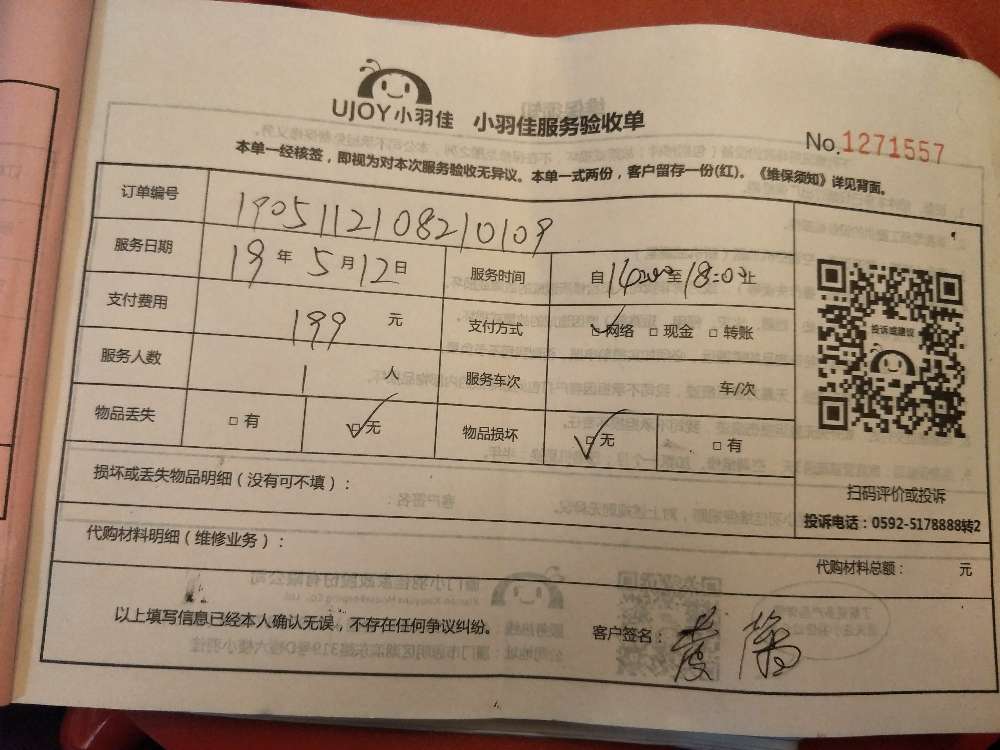 UJOY小羽佳 小羽佳服务验收单
No.1271557
本单一经核签，即视为对本次服务验收无异议。本单一式两份，客户留存一份(红)。《维保须知》详见背面。
订单编号 1905112108210109
服务日期 19年5月12日 服务时间 自14:00至18:00止
支付费用 199 元 支付方式 网络 □现金 □转账
服务人数 1 人 服务车次 车/次
物品丢失 □有 □无 物品损坏 □无 □有
投诉或建议
扫码评价或投诉
投诉电话：0592-5178888转2
损坏或丢失物品明细（没有可不填）：
代购材料明细（维修业务）：
代购材料总额： 元
以上填写信息已经本人确认无误，不存在任何争议纠纷。 客户签名：